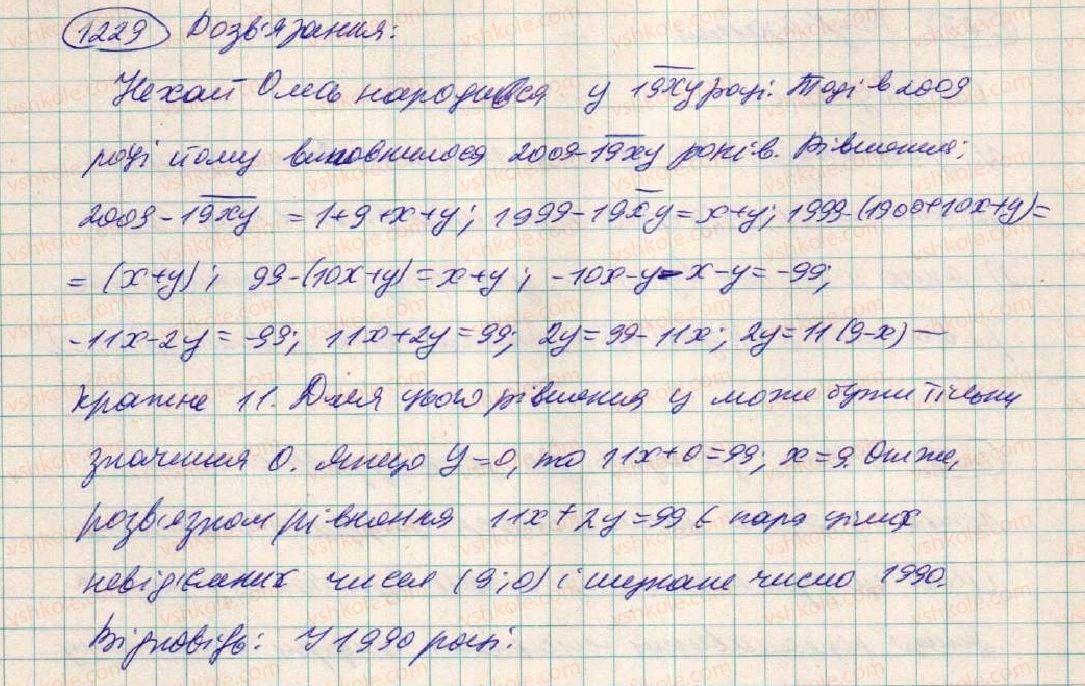 1229 Розв'язання:
Нехай Олесь народився у 19xy році. Тоді в 2009
році йому виповнилося 2009-19xy років. Рівняння:
2009-19xy = 1+9+x+y; 1999-19xy=x+y; 1999-(1900+10x+y)=
= (x+y); 99-(10x+y)=x+y; -10x-y-x-y=-99;
-11x-2y=-99; 11x+2y=99; 2y=99-11x; 2y=11(9-x) —
кратне 11. Для цього рівняння y може бути тільки
значення 0. Якщо y=0, то 11x+0=99; x=9. Отже,
розв'язком рівняння 11x+2y=99 є пара цілих
невід'ємних чисел (9;0) і шукане число 1990.
Відповідь: У 1990 році.